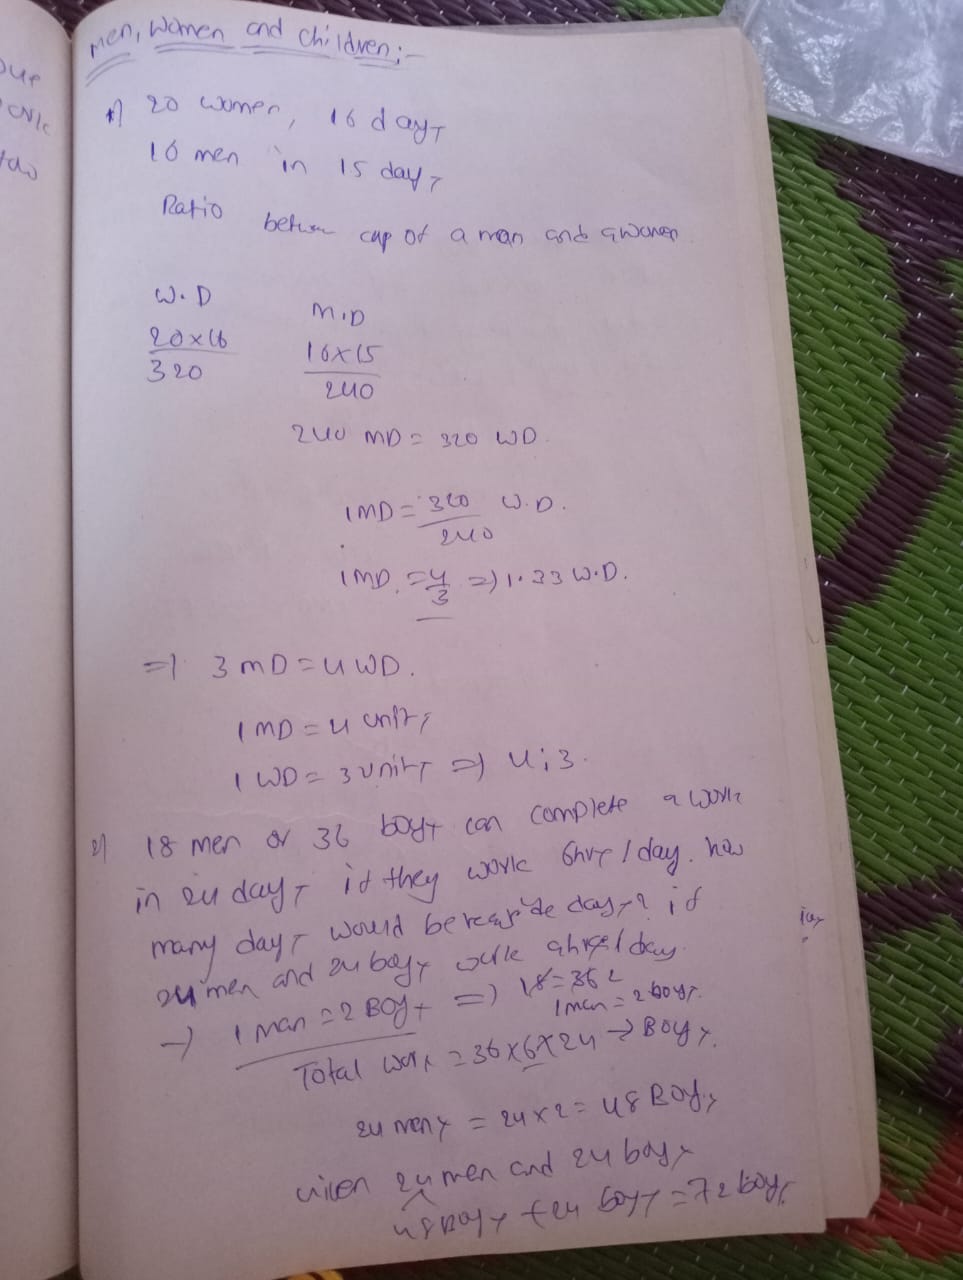 men, women and children:-
1) 20 women, 16 days
16 men in 15 days
Ratio between cap of a man and a women
W.D
M.D
20x16
16x15
320
240
240 MD = 320 WD.
1MD = 320 W.D.
240
1MD. = 4/3 => 1.33 W.D.
=> 3 MD = 4 WD.
1 MD = 4 units
1 WD = 3 units => 4:3.
2) 18 men or 36 boys can complete a work
in 24 days if they work 6hrs/day. how
many days would be days? if
24 men and 24 boys work 9hrs/day.
-> 1 man = 2 Boys => 18=36
1man = 2 boys.
Total work = 36x6x24 -> Boys.
24 men = 24x2 = 48 Boys
given 24 men and 24 boys
48 Boys + 24 boys = 72 boys